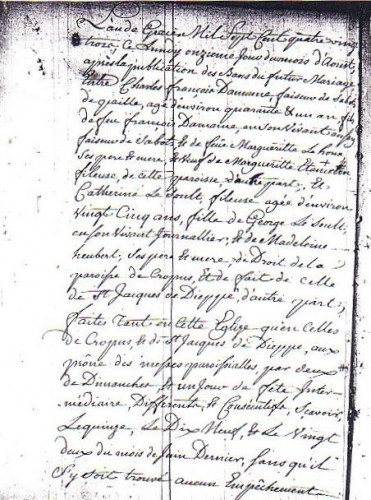 L'an de Grace Mil Sept Cent quatre vingt
trois, Ce Lundy onzieme Jour du mois d'Aoust,
après la publication des Bans du futur Mariage
Entre Charles François Damoine, faiseur de Sabots
de paille, agé d'environ quarante & un an, fils
de feu François Damoine, en Son Vivant
faiseur de Sabots, & de feüe Margueritte Le
Ses pere & mere, & Veuf de Margueritte
fileuse, de cette paroisse, d'autre part; Et
Catherine Le Soult, fileuse agée d'environ
Vingt Cinq ans, fille de George Le Soult,
en Son Vivant Journallier, & de Madeleine
heubert; Ses pere & mere, de Droit de la
paroisse de Cropus, Et de fait de celle
de St Jacques de Dieppe, d'autre part;
faites Tant en Cette Eglise qu'en Celles
de Cropus, & de St Jacques de Dieppe, aux
prône des messes paroissialles par deux
de Dimanches & un Jour de fête Inter-
médiaire, Differents, & Consécutifs, Scavoir,
Le quinze, Le Dix Neuf, & Le Vingt
deux du mois de Juin Dernier, Sans qu'il
S'y soit trouvé aucun Empêchement